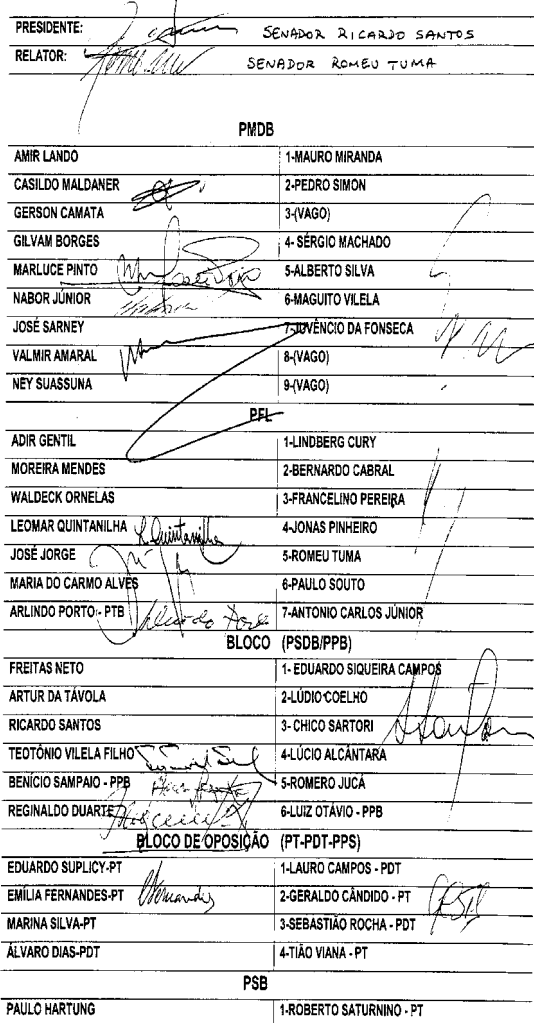 PRESIDENTE: SENADOR RICARDO SANTOS
RELATOR: SENADOR ROMEU TUMA
PMDB
AMIR LANDO 1-MAURO MIRANDA
CASILDO MALDANER 2-PEDRO SIMON
GERSON CAMATA 3-(VAGO)
GILVAM BORGES 4- SÉRGIO MACHADO
MARLUCE PINTO 5-ALBERTO SILVA
NABOR JÚNIOR 6-MAGUITO VILELA
JOSÉ SARNEY 7-JUVÊNCIO DA FONSECA
VALMIR AMARAL 8-(VAGO)
NEY SUASSUNA 9-(VAGO)
PFL
ADIR GENTIL 1-LINDBERG CURY
MOREIRA MENDES 2-BERNARDO CABRAL
WALDECK ORNELAS 3-FRANCELINO PEREIRA
LEOMAR QUINTANILHA L. Quintanilha 4-JONAS PINHEIRO
JOSÉ JORGE 5-ROMEU TUMA
MARIA DO CARMO ALVES 6-PAULO SOUTO
ARLINDO PORTO - PTB 7-ANTONIO CARLOS JÚNIOR
BLOCO (PSDB/PPB)
FREITAS NETO 1- EDUARDO SIQUEIRA CAMPOS
ARTUR DA TÁVOLA 2-LÚDIO COELHO
RICARDO SANTOS 3- CHICO SARTORI
TEOTÔNIO VILELA FILHO 4-LÚCIO ALCÂNTARA
BENÍCIO SAMPAIO - PPB 5-ROMERO JUCÁ
REGINALDO DUARTE 6-LUIZ OTÁVIO - PPB
BLOCO DE OPOSIÇÃO (PT-PDT-PPS)
EDUARDO SUPLICY-PT 1-LAURO CAMPOS - PDT
EMÍLIA FERNANDES-PT 2-GERALDO CÂNDIDO - PT
MARINA SILVA-PT 3-SEBASTIÃO ROCHA - PDT
ÁLVARO DIAS-PDT 4-TIÃO VIANA - PT
PSB
PAULO HARTUNG 1-ROBERTO SATURNINO - PT